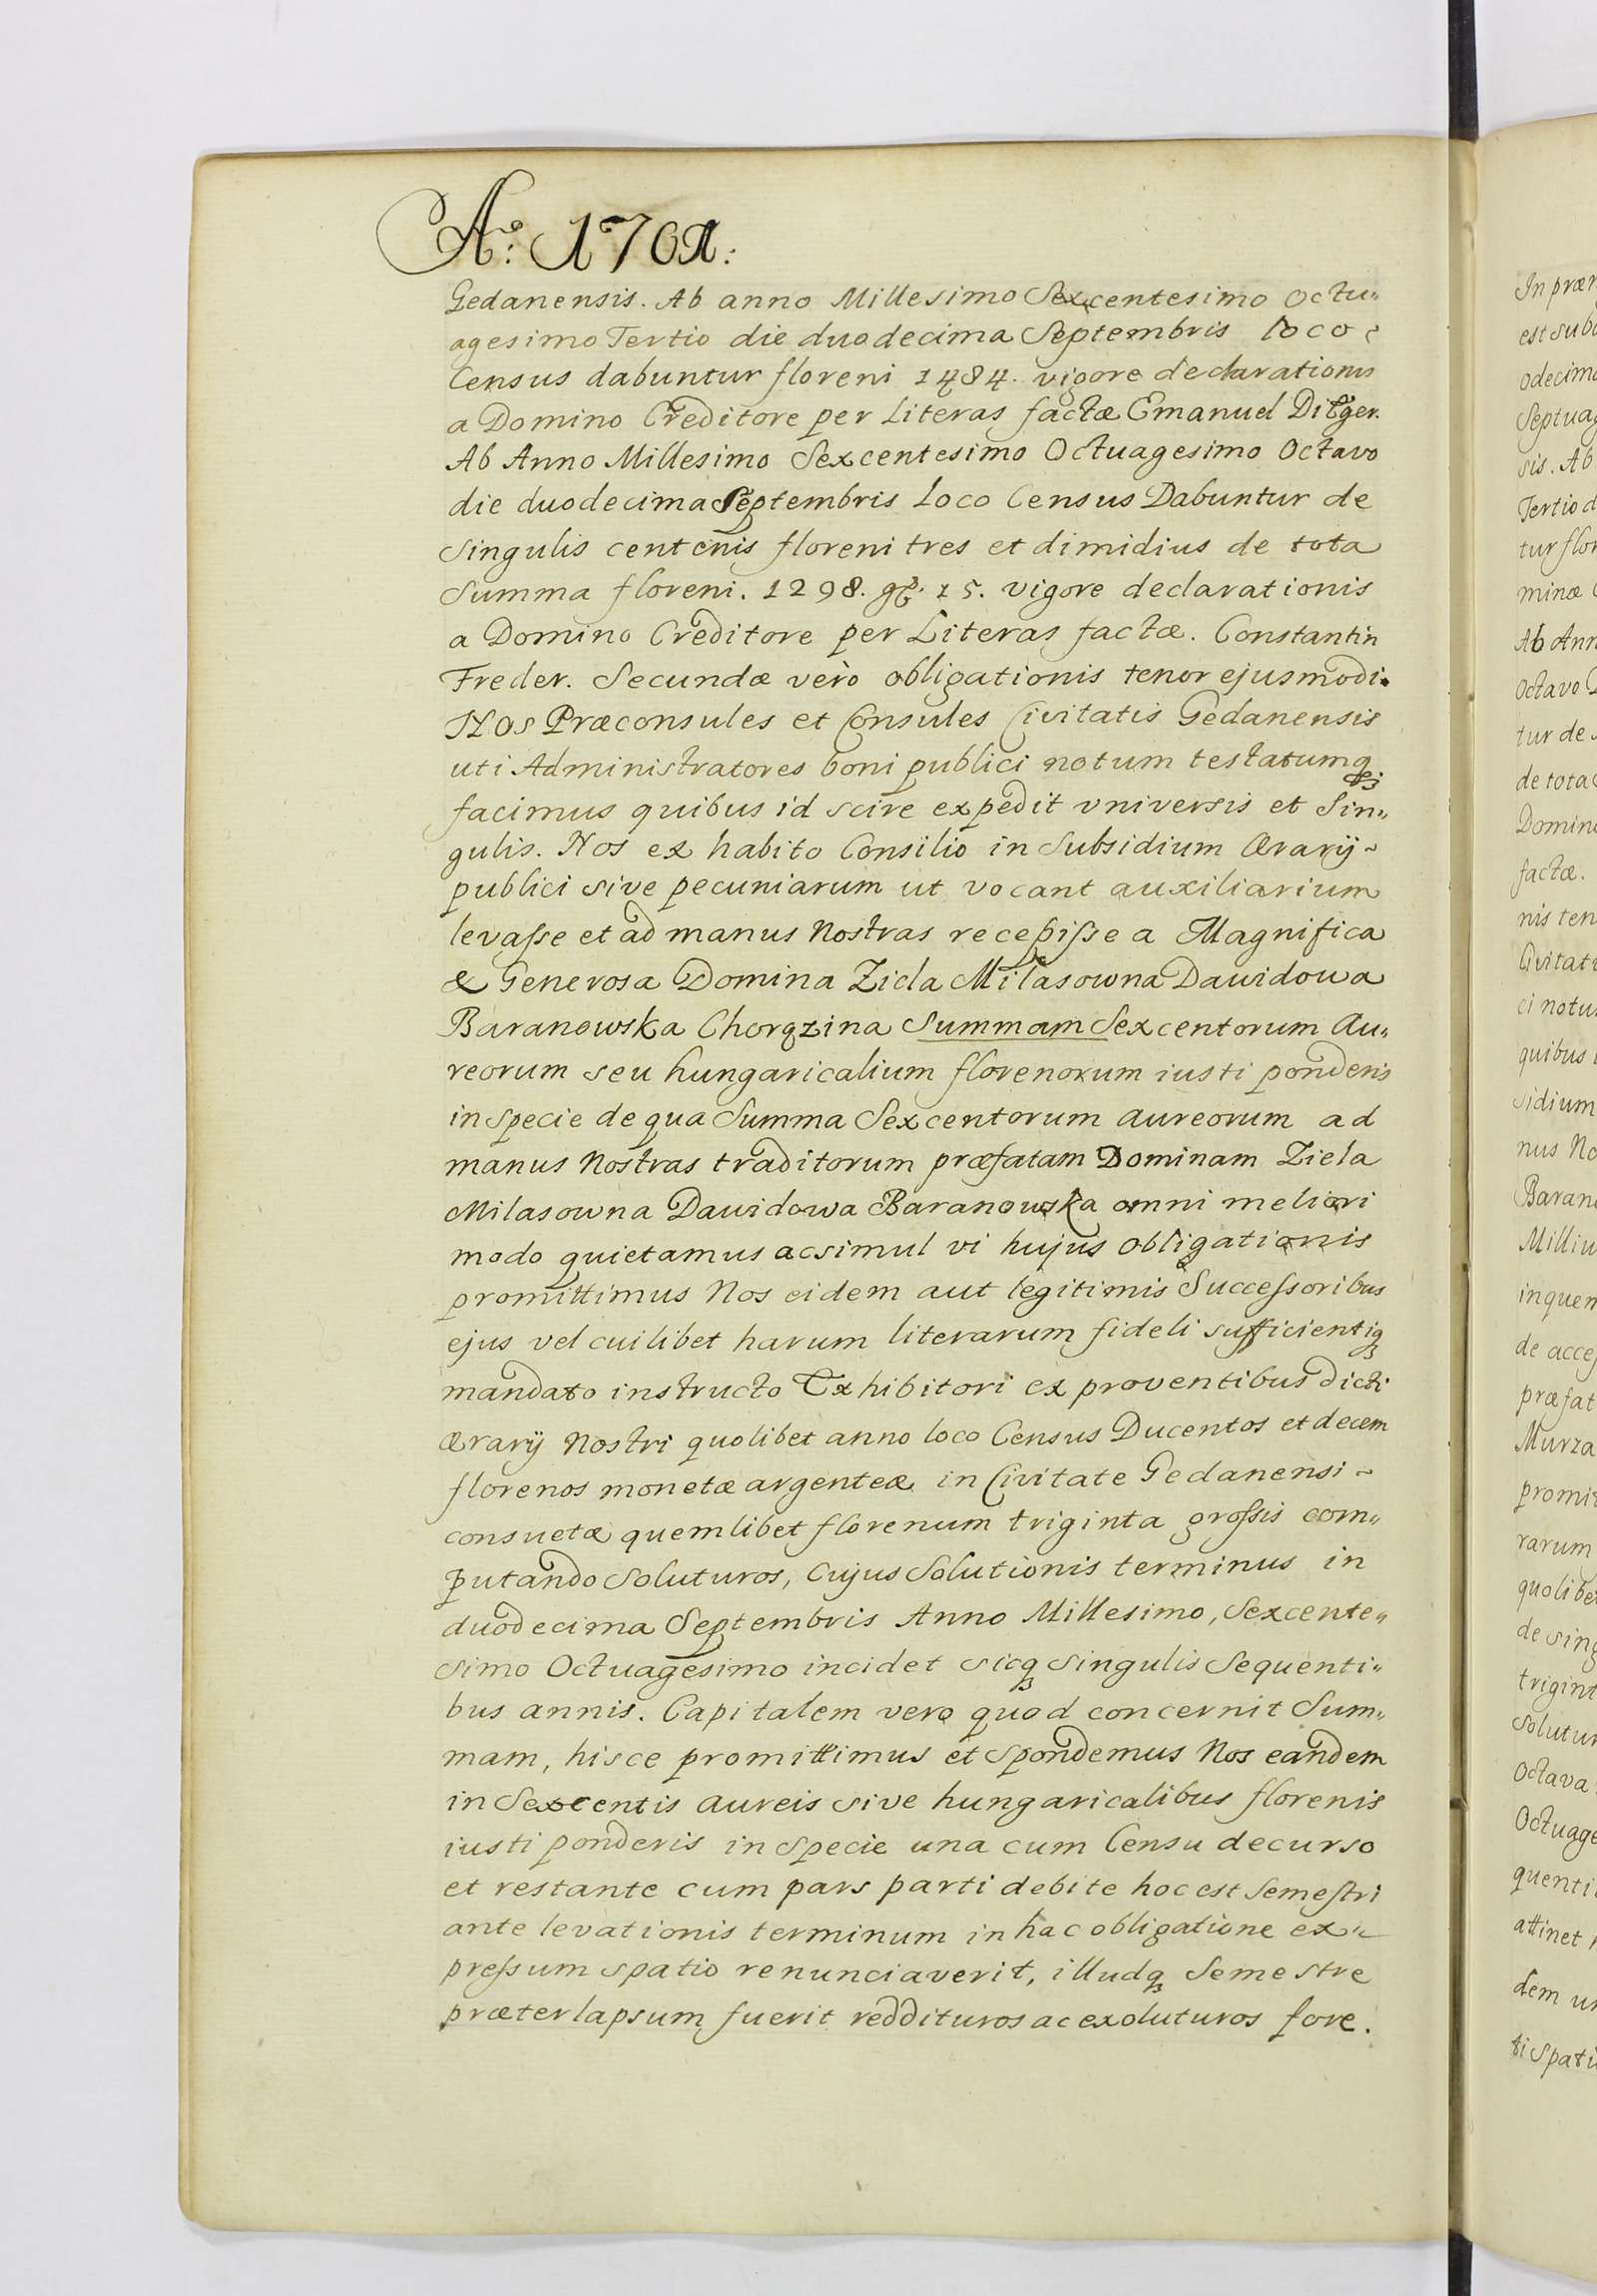 Aº: 1701:
Gedanensis. Ab anno Millesimo Sexcentesimo Octu„
agesimo Tertio die duodecima Septembris loco
Census dabuntur floreni 1484. vigore declarationis
a Domino Creditore per Literas factæ Emanuel Dilger.
Ab Anno Millesimo Sexcentesimo Octuagesimo Octavo
die duodecima Septembris Loco Census Dabuntur de
Singulis centenis floreni tres et dimidius de tota
Summa floreni. 1298. gr. 15. vigore declarationis
a Domino Creditore per Literas factæ. Constantin
Freder. Secundæ verò obligationis tenor ejusmodi.
Nos Præconsules et Consules Civitatis Gedanensis
uti Administratores boni publici notum testatumqꝫ
facimus quibus id scire expedit vniversis et Sin„
gulis. Nos ex habito Consilio in Subsidium Ærarij~
publici sive pecuniarum ut vocant auxiliarium
levasse et ad manus Nostras recepisse a Magnifica
& Generosa Domina Ziela Milasowna Dawidowa
Baranowska Chorązina Summam Sexcentorum Au„
reorum seu hungaricalium florenorum iusti ponderis
in specie de qua Summa Sexcentorum aureorum ad
manus Nostras traditorum præfatam Dominam Ziela
Milasowna Dawidowa Baranowska omni meliori
modo quietamus acsimul vi hujus obligationis
promittimus Nos eidem aut legitimis Successoribus
ejus vel cuilibet harum literarum fideli sufficientiqꝫ
mandato instructo Exhibitori ex proventibus dicti
ærarij Nostri quolibet anno loco Census Ducentos et decem
florenos monetæ argenteæ in Civitate Gedanensi~
consuetæ quemlibet florenum triginta grossis com„
putando Soluturos, Cujus Solutionis terminus in
duodecima Septembris Anno Millesimo, Sexcente„
simo Octuagesimo incidet sicqꝫ singulis Sequenti„
bus annis. Capitalem vero quod concernit Sum„
mam, hisce promittimus et spondemus Nos eandem
in Sexcentis aureis sive hungaricalibus florenis
iusti ponderis in specie una cum Censu decurso
et restante cum pars parti debite hoc est Semestri
ante levationis terminum in hac obligatione ex„
pressum spatio renunciaverit, illudqꝫ Semestre
præterlapsum fuerit reddituros ac exoluturos fore.
est sub
odecim
Septuag
sis. Ab
Tertio d
tur flor
minæ
Ab Ann
Octavo
tur de
de tota
Domin
factæ.
nis ten
Civitat
ci notu
quibus
sidium
nus No
Baran
Milliu
inquen
de acce
præfat
Murza
promi
rarum
quolibe
de sing
trigint
Solutur
Octava
Octuage
quenti
attinet
dem un
ti spati